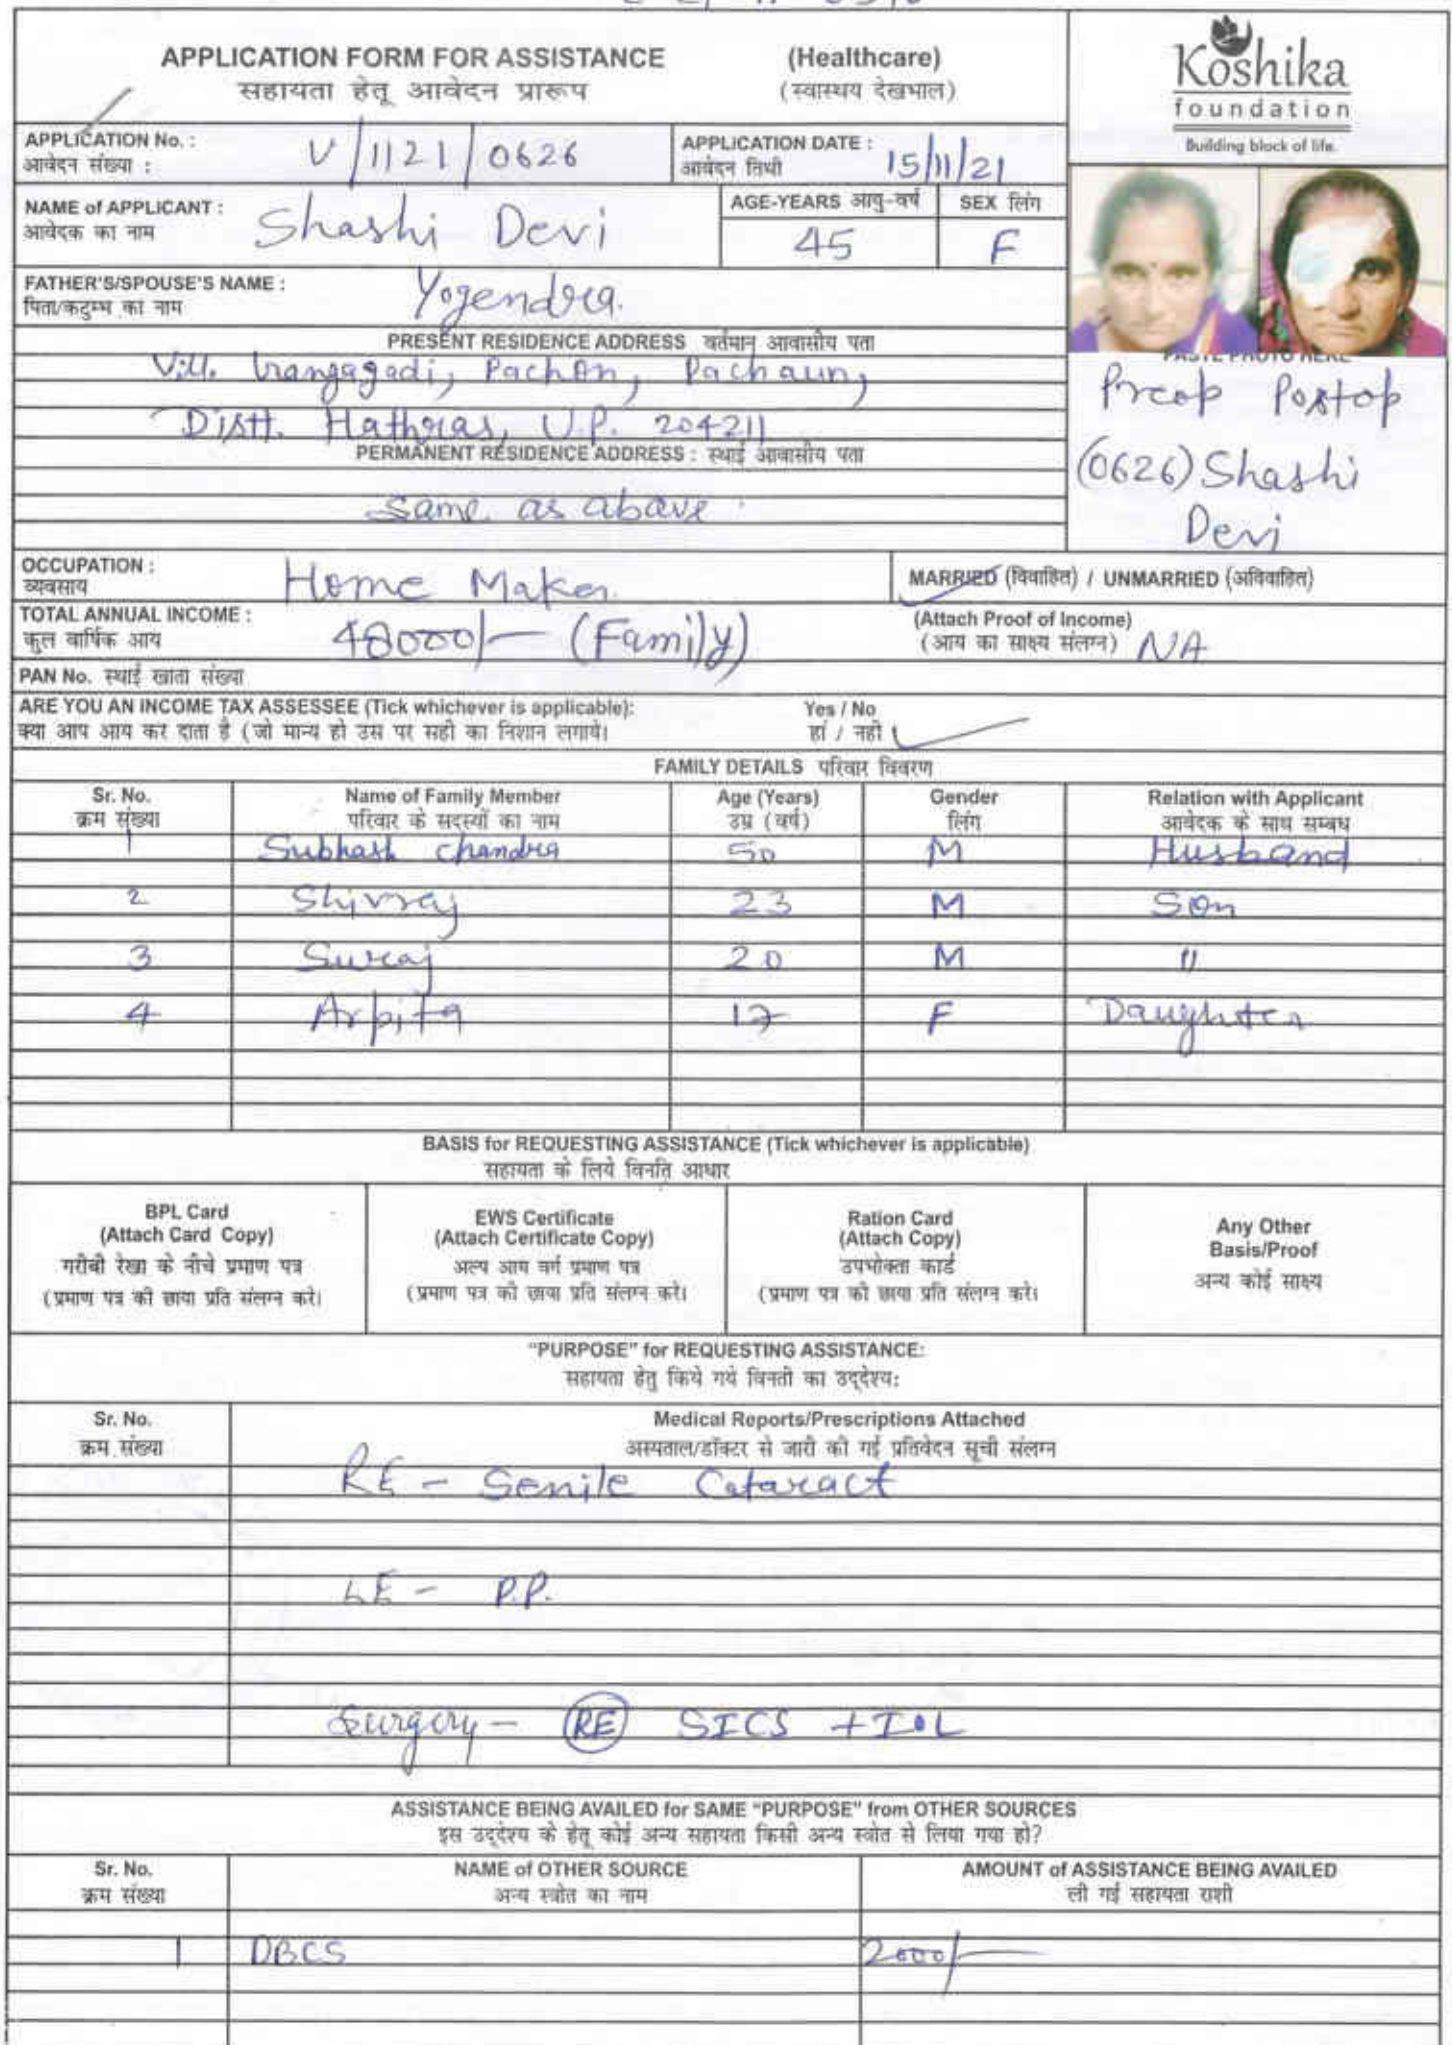 APPLICATION FORM FOR ASSISTANCE (Healthcare)
सहायता हेतू आवेदन प्रारूप (स्वास्थय देखभाल)
Koshika
foundation
Building block of life.
APPLICATION No. :
आवेदन संख्या :
V/1121/0626
APPLICATION DATE :
आवेदन तिथी
15/11/21
NAME of APPLICANT :
आवेदक का नाम
Shashi Devi
AGE-YEARS आयु-वर्ष
45
SEX लिंग
F
FATHER'S/SPOUSE'S NAME :
पिता/कटुम्भ का नाम
Yogendra.
PRESENT RESIDENCE ADDRESS वर्तमान आवासीय पता
Vill. Pachon, Pachaun,
Distt. Hathras, U.P. 204211
PERMANENT RESIDENCE ADDRESS : स्थाई आवासीय पता
Same as above
PASTE PHOTO HERE
Preop Postop
(0626) Shashi
Devi
OCCUPATION :
व्यवसाय
Home Maker
MARRIED (विवाहित) / UNMARRIED (अविवाहित)
TOTAL ANNUAL INCOME :
कुल वार्षिक आय
48000/- (Family)
(Attach Proof of Income)
(आय का साक्ष्य संलग्न) NA
PAN No. स्थाई खाता संख्या
ARE YOU AN INCOME TAX ASSESSEE (Tick whichever is applicable): Yes / No
क्या आप आय कर दाता है (जो मान्य हो उस पर सही का निशान लगाये। हां / नही
FAMILY DETAILS परिवार विवरण
Sr. No. Name of Family Member Age (Years) Gender Relation with Applicant
क्रम संख्या परिवार के सदस्यों का नाम उम्र (वर्ष) लिंग आवेदक के साथ सम्बध
1 Subhash Chandra 50 M Husband
2 Shivraj 23 M Son
3 Suraj 20 M "
4 Arpita 17 F Daughter
BASIS for REQUESTING ASSISTANCE (Tick whichever is applicable)
सहायता के लिये विनति आधार
BPL Card
(Attach Card Copy)
गरीबी रेखा के नीचे प्रमाण पत्र
(प्रमाण पत्र की छाया प्रति संलग्न करे।
EWS Certificate
(Attach Certificate Copy)
अल्प आय वर्ग प्रमाण पत्र
(प्रमाण पत्र की छाया प्रति संलग्न करे।
Ration Card
(Attach Copy)
उपभोक्ता कार्ड
(प्रमाण पत्र की छाया प्रति संलग्न करे।
Any Other
Basis/Proof
अन्य कोई साक्ष्य
"PURPOSE" for REQUESTING ASSISTANCE:
सहायता हेतु किये गये विनती का उद्देश्य:
Sr. No. Medical Reports/Prescriptions Attached
क्रम संख्या अस्पताल/डॉक्टर से जारी की गई प्रतिवेदन सूची संलग्न
RE - Senile Cataract
LE - P.P.
Surgery - RE SICS + IOL
ASSISTANCE BEING AVAILED for SAME "PURPOSE" from OTHER SOURCES
इस उद्देश्य के हेतू कोई अन्य सहायता किसी अन्य स्त्रोत से लिया गया हो?
Sr. No. NAME of OTHER SOURCE AMOUNT of ASSISTANCE BEING AVAILED
क्रम संख्या अन्य स्त्रोत का नाम ली गई सहायता राशी
1 DBCS 2000/-